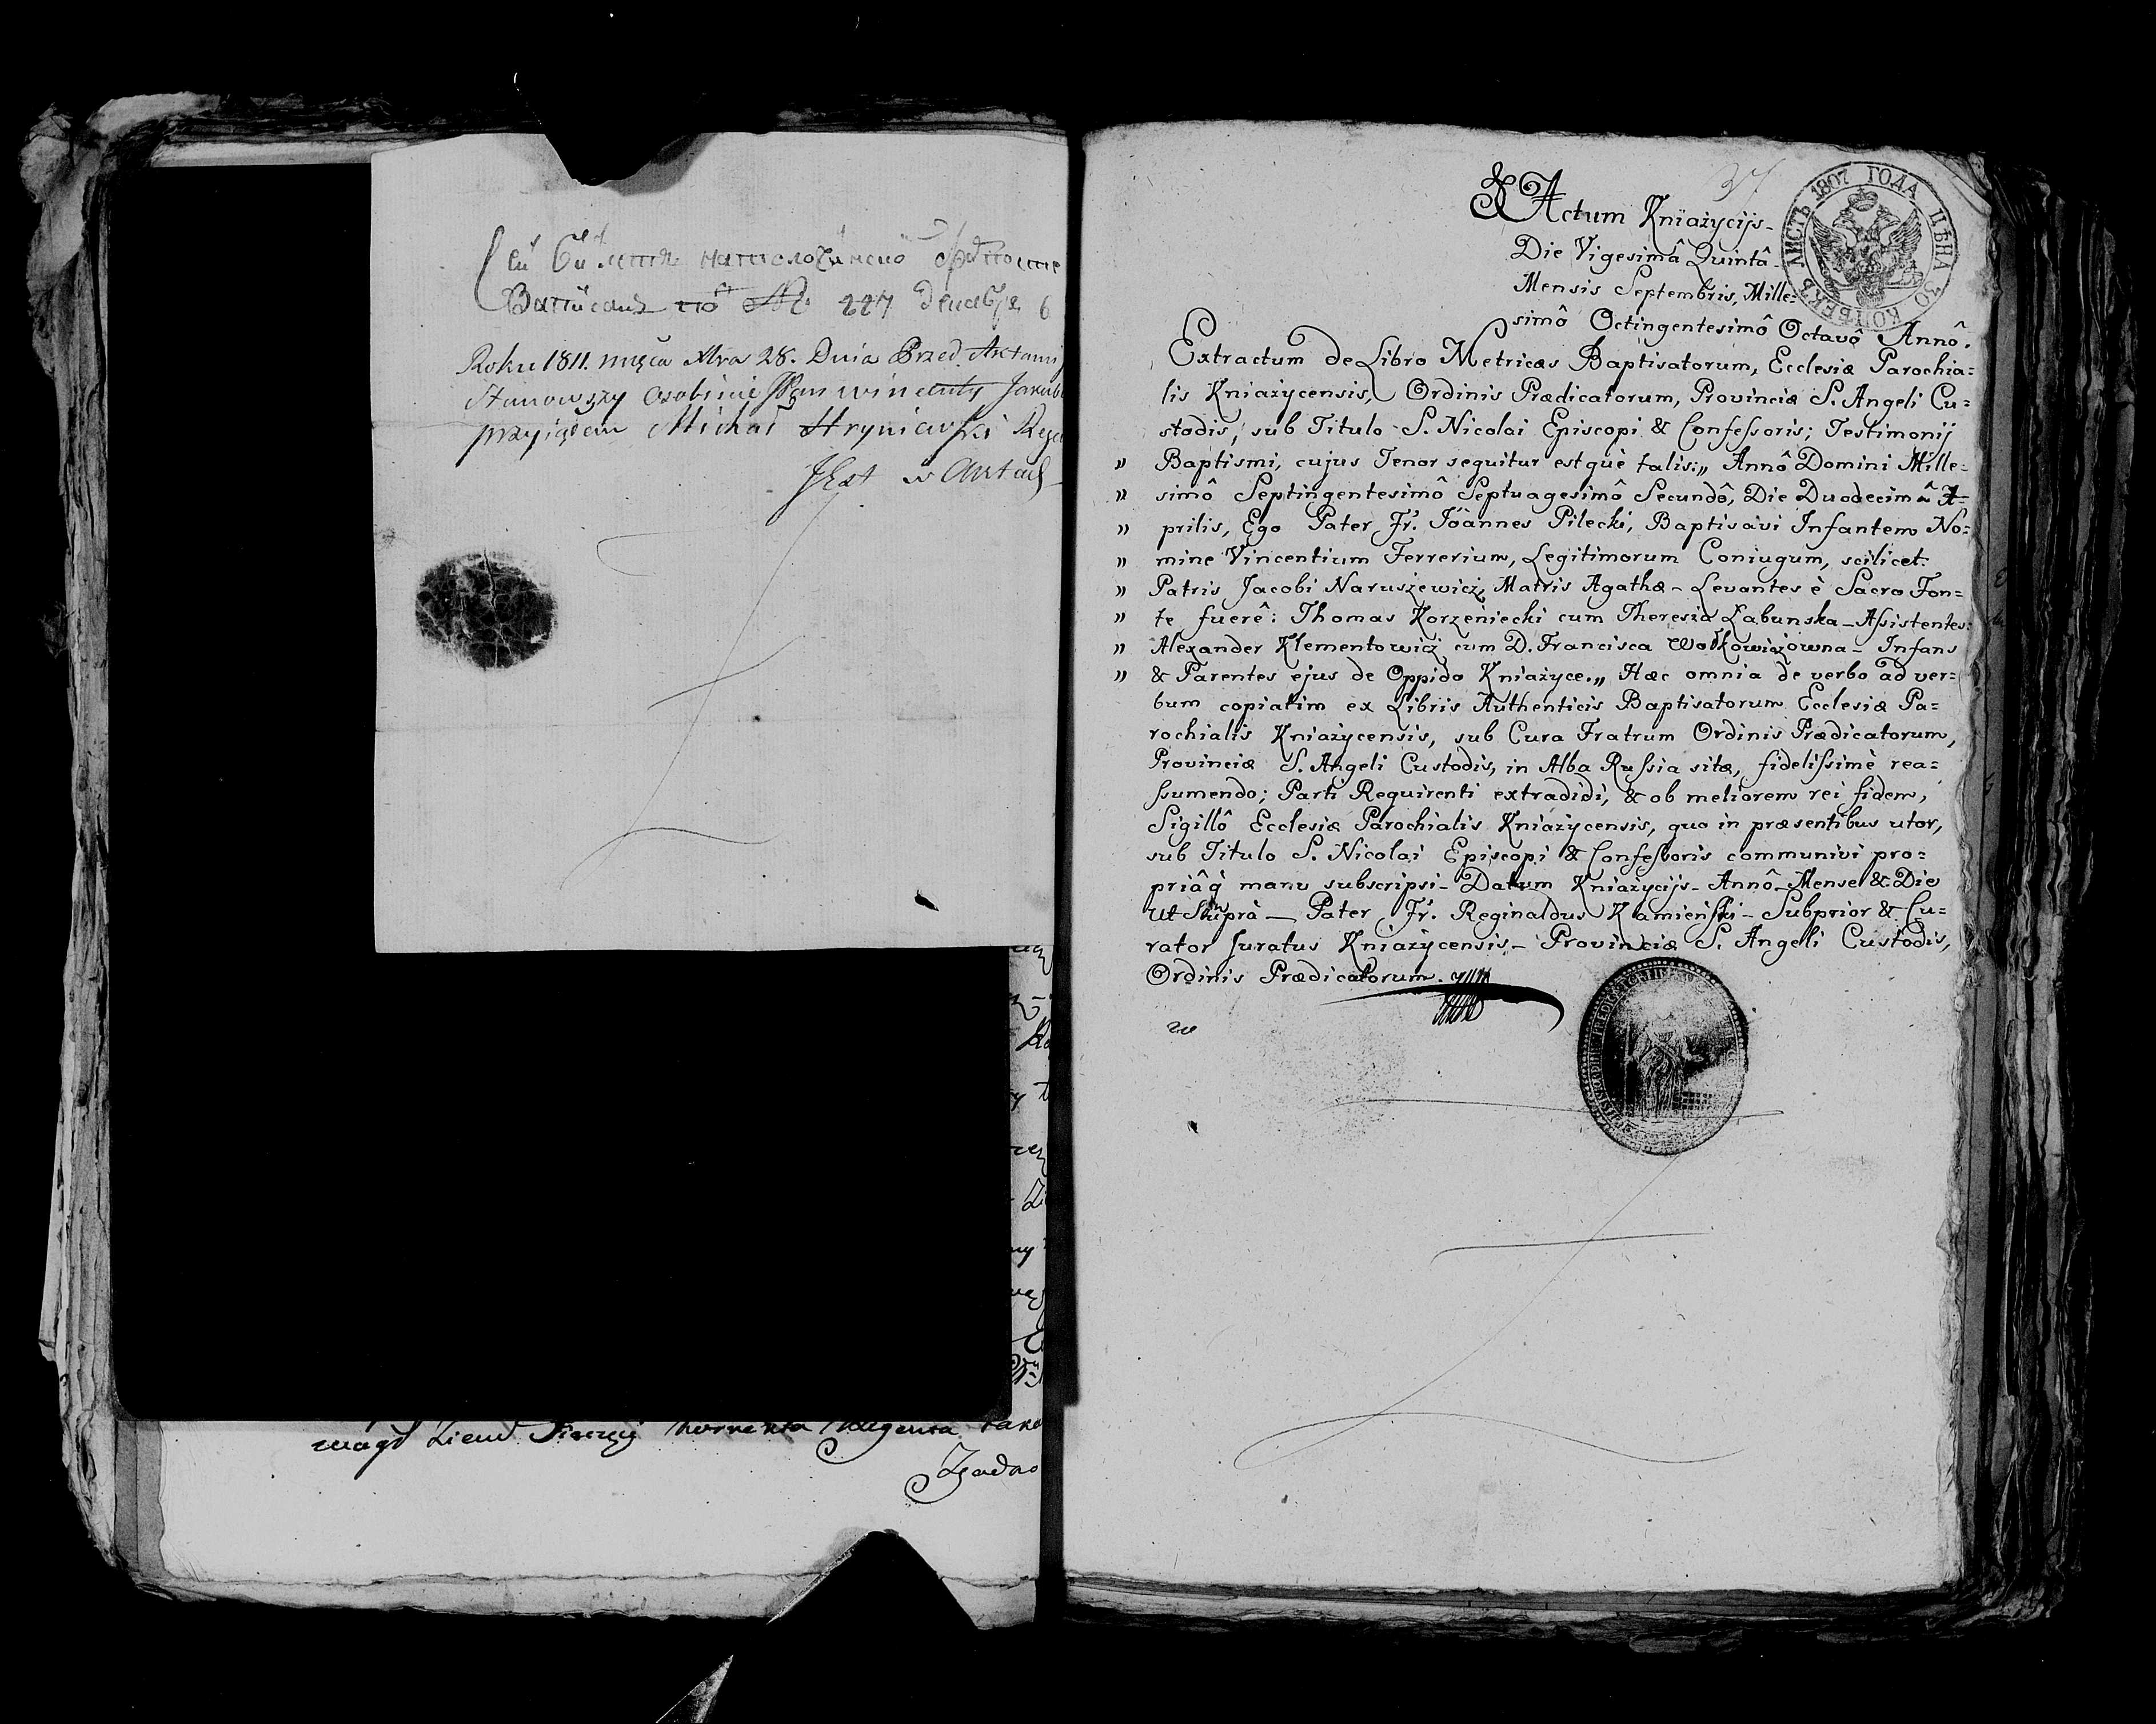 Сей Билетъ
Записанъ по № 227 Декабря 6
Roku 1811. mȩca Xbra 28. Dnia Przed Aktami
Stanowszy osobiscie Pan Wincenty Jakub
przyiąłem Michał Hryniewski Rege
Jest w Aktach
37
ЛИСТЪ 1807 ГОДА ЦѢНА 30 КОПѢЕКЪ
Actum Kniażycijs-
Die Vigesimâ Quintâ-
Mensis Septembris, Mille=
simô Octingentesimô Octavô Annô.
Extractum de Libro Metrices Baptisatorum, Ecclesiæ Parochia=
lis Kniażycensis, Ordinis Prædicatorum, Provinciæ S. Angeli Cu=
stodis, sub Titulo S. Nicolai Episcopi & Confessoris; Testimonij
„ Baptismi, cujus Tenor sequitur estquè talis:„ Annô Domini Mille=
„ simô Septingentesimô Septuagesimô Secundô, Die Duodecimâ A=
„ prilis, Ego Pater Fr. Joannes Pilecki, Baptisavi Infantem No=
„ mine Vincentium Ferrerium, Legitimorum Coniugum, scilicet:
„ Patris Jacobi Naruszewicz, Matris Agathæ - Levantes è Sacro Fon=
„ te fuerê: Thomas Korzeniecki cum Theresia Łabunska - Assistentes:
„ Alexander Klementowicz cum D. Francisca Wołkowiczowna - Infans
„ & Parentes ejus de Oppido Kniażyce.„ Hæc omnia de verbo ad ver=
bum copiatim ex Libris Authenticis Baptisatorum Ecclesiæ Pa=
rochialis Kniażycensis, sub Cura Fratrum Ordinis Prædicatorum,
Provinciæ S. Angeli Custodis, in Alba Russia sitæ, fidelissimè rea=
ssumendo; Parti Requirenti extradidi, & ob meliorem rei fidem,
Sigillô Ecclesiæ Parochialis Kniażycensis, quo in præsentibus utor,
sub Titulo S. Nicolai Episcopi & Confessoris communivi pro=
priâq manu subscripsi - Datum Kniażycijs - Annô - Mense & Die
ut Suprà - Pater Fr. Reginaldus Kamieński - Subprior & Cu=
rator Juratus Kniażycensis - Provinciæ S. Angeli Custodis,
Ordinis Prædicatorum.